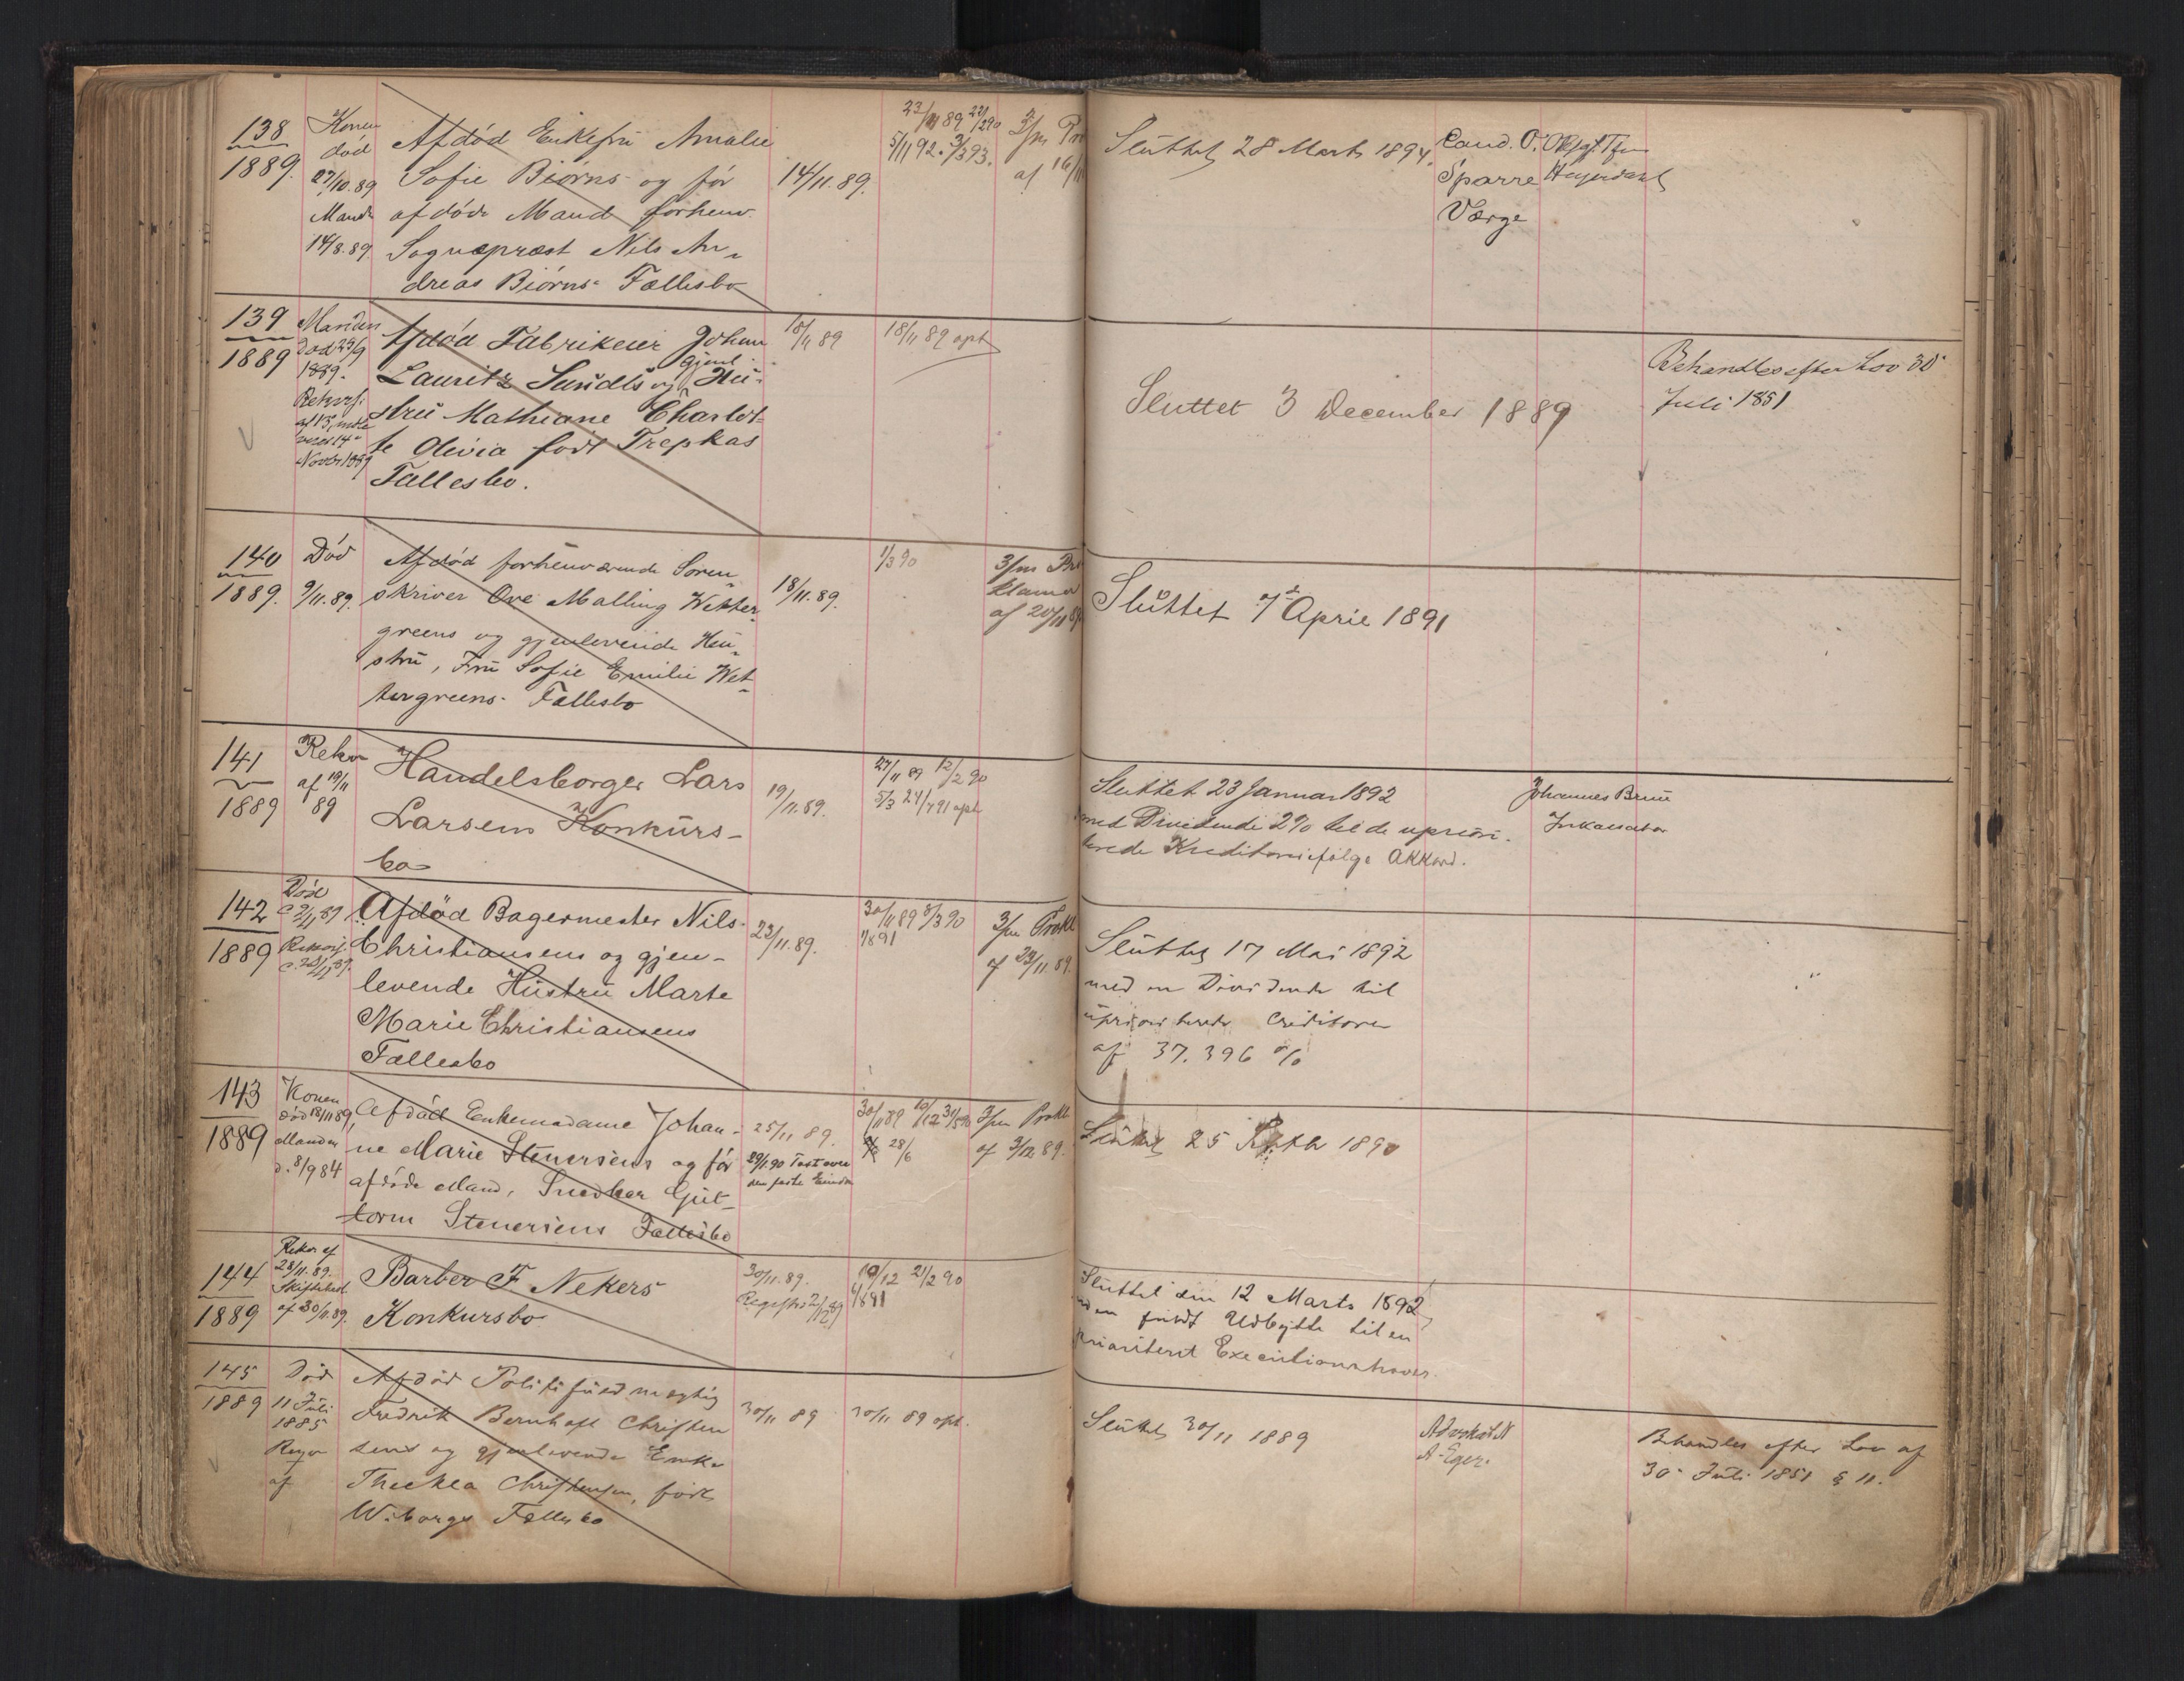 138
1889.
Konen
død
27/10.89
Manden
14/8.89
Afdød Enkefru Amalie
Sofie Biørns og før
afdøde Mand forhenv.
Sognepræst Nils An-
dreas Biørns Fællesbo
14/11.89.
23/11 89
5/11 92. 3/3 93.
3/m
af
Sluttet 28 Marts 1894.
Cand. O.
Sparre
Værge
139
1889
Manden
død 23/9
1889.
Rekvis.
af 15,
14
Novbr 1889
Afdød Fabrikeier Johan
Lauretz Sundts og gjenl. Hu-
stru Mathiane Charlot-
te Olivia født Trepkas
Fællesbo.
18/11 89
18/11 89 opt
Sluttet 3 December 1889
Behandles efter Lov 30
Juli 1851
140
1889.
Død
9/11.89.
Afdød forhenværende Soren-
skriver Ove Malling Wetter-
greens og gjenlevende Hu-
stru, Fru Sofie Emilie Wet-
tergreens Fællesbo
18/11.89.
1/3 90
3/m Pro
klama
af 20/11 89
Sluttet 7de April 1891
141
1889
Rekv
af 19/11
89
Handelsborger Lars
Larsens Konkurs-
bo
19/11.89.
27/11 89 12/2 90
5/3 24/7 91 opt
Sluttet 23 Januar 1892
med Dividende 2% til de upriori-
terede Kreditorer ifølge Akkord.
Johannes Bruu
Inkassator
142
1889
Død
2/11 89
Rekvis.
23/11 89.
Afdød Bagermester Nils
Christiansens og gjen-
levende Hustru Marte
Marie Christiansens
Fællesbo
23/11.89.
30/11 89 8/3 90
1/8 91
3/m Prokl
af 23/11.89.
Sluttet 17 Mai 1892
med en Dividende til
uprioriterede Creditorer
af 37.396 %
143
1889
Konen
død 18/11 89,
Manden
d. 8/9 84
Afdød Enkemadame Johan-
ne Marie Stenersens og før
afdøde Mand, Snedker Gut-
torm Stenersens Fællesbo
25/11 89.
29/1.90 Taxt over
den faste Eiendom
30/11 89
28/6
3/m Prokl
af 3/12 89.
Sluttet 25 Septbr 1890
144
1889
Rekv. af
28/11.89.
Skiftebesl.
af 30/11.89.
Barber F Nekers
Konkursbo
30/11.89.
Registr 2/12 89
19/12 21/2 90
Sluttet den 12 Marts 1892,
uden fuldt Udbytte til en
prioriteret Executionshaver.
145
1889
Død
11 Juli
1885
af
Afdød Politifuldmægtig
Fredrik Bernhoft Christen
sens og gjenlevende Enke
Theckla Christensen, født
Wiborgs Fællesbo
30/11 89
30/11 89 opt.
Sluttet 30/11 1889
Advokat N
A. Eger.
Behandles efter Lov af
30 Juli 1851 § 11.